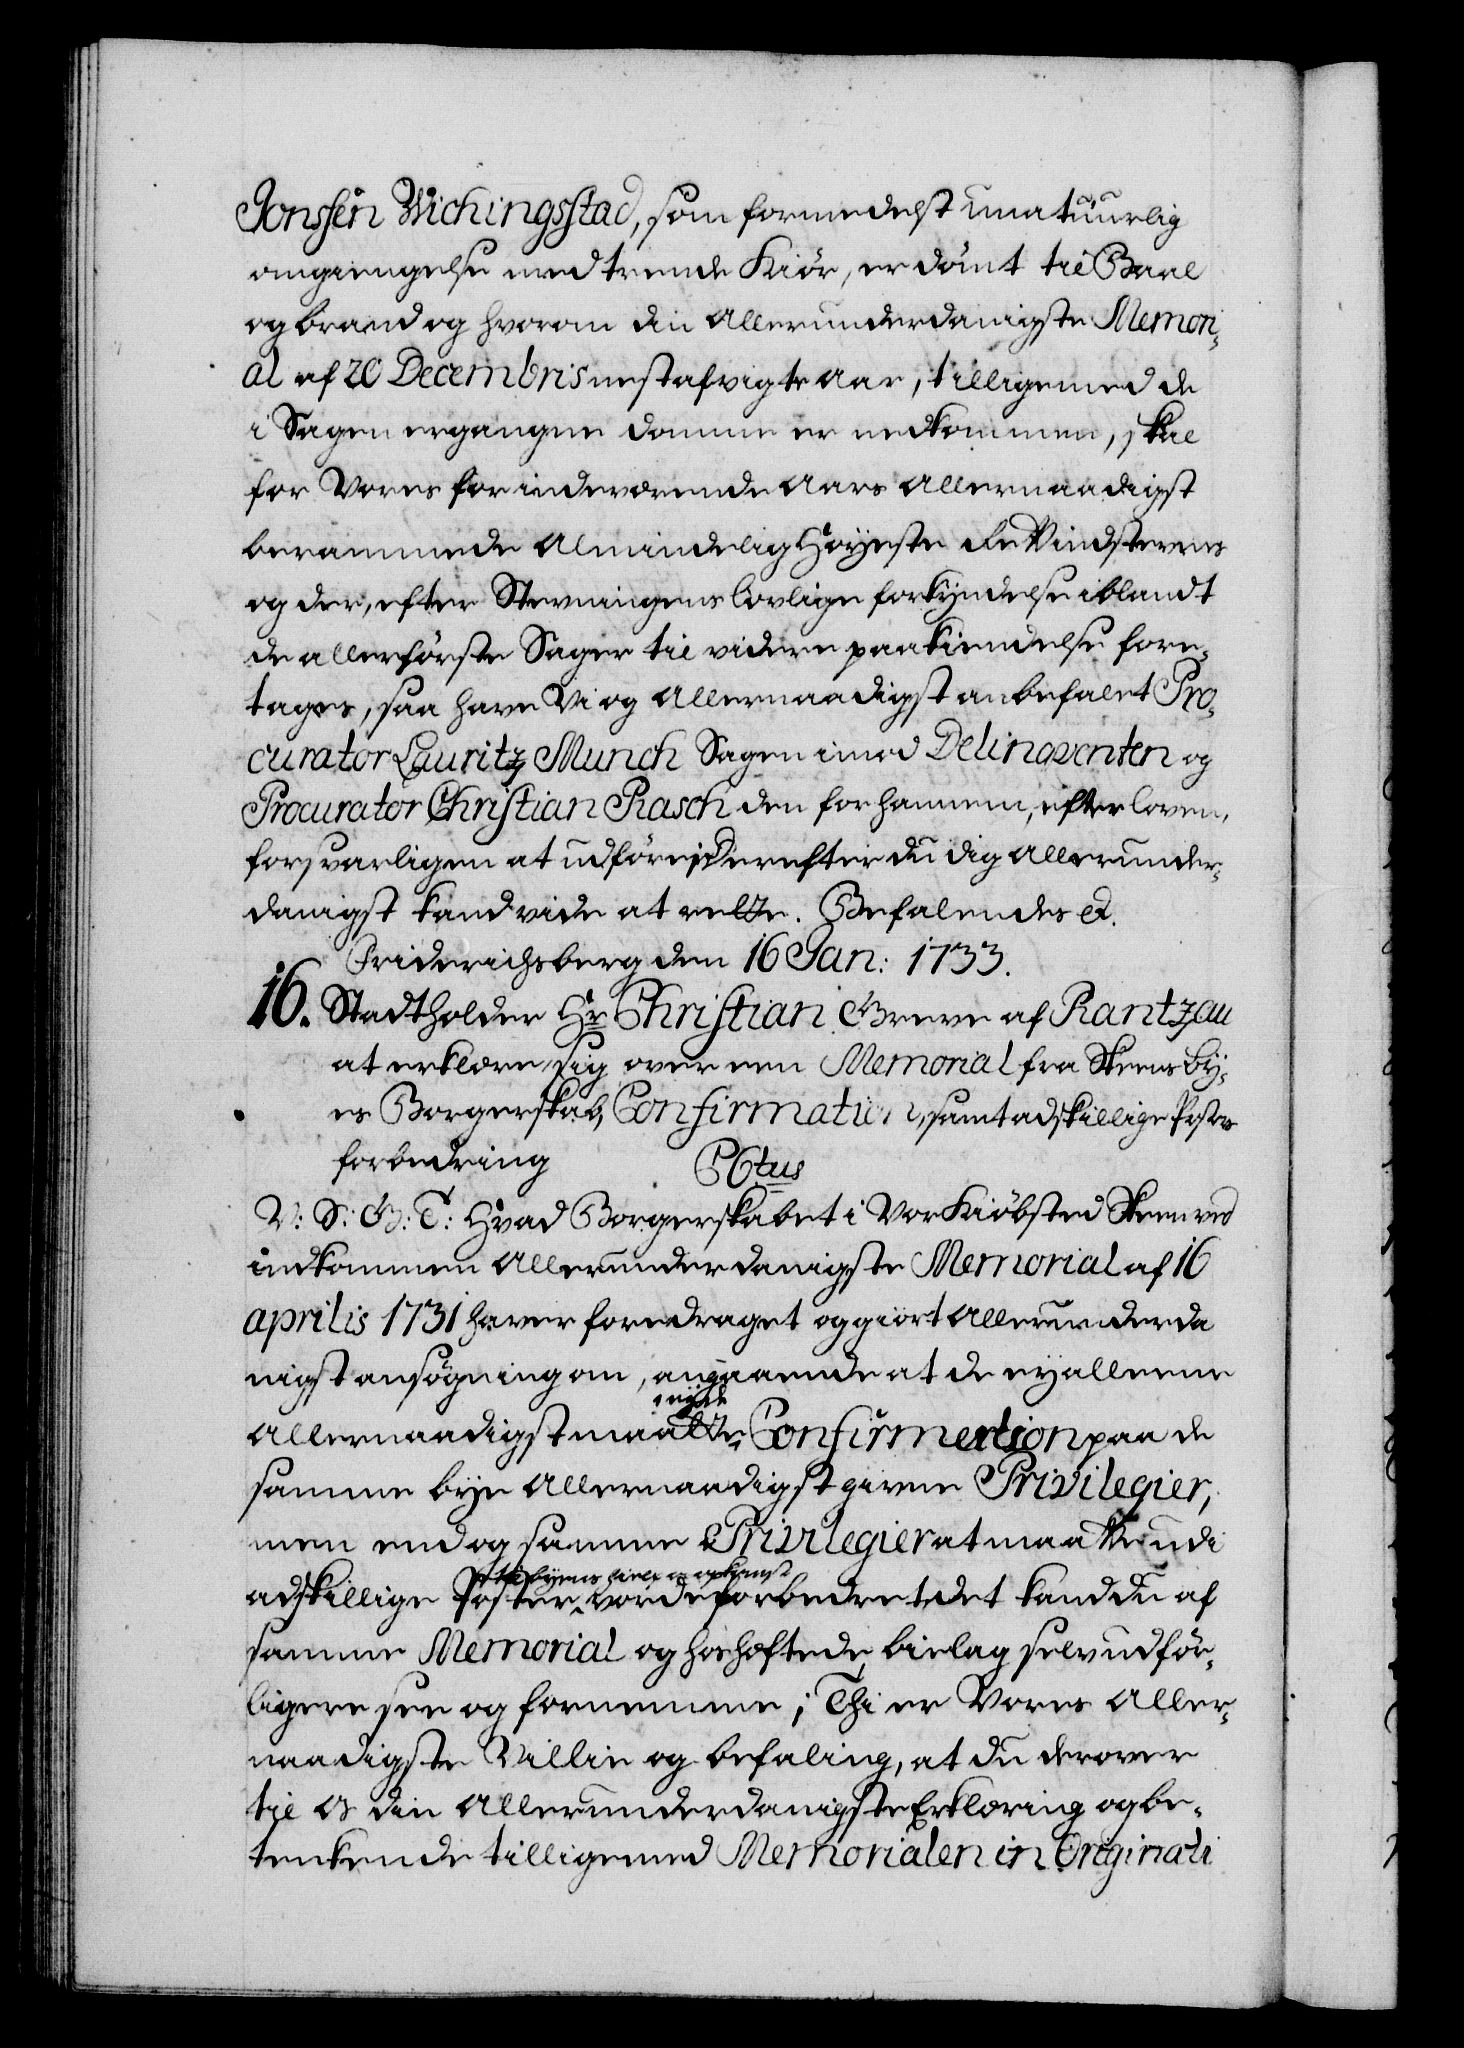 Jonssen Wichingsstad, som formedelst unatuurlig
omgiengelse med trende Kiör, er dömt til Baal
og brand og hvorom din Allerunderdanigste Memori-
al af 20 Decembris nest afvigte Aar, tilligemed de
i Sagen ergangne Domme er nedkommen, skal
for Vores for indeværende Aars Allernaadigst
berammede Almindelig Høyeste Rett indstevnes
og der, efter Stevningens lovlige forkyndelse iblandt
de allerförste Sager til videre paakiendelse fore-
tages, saa have Vi og Allernaadigst anbefalet Pro-
curator Lauritz Munch Sagen imod Delinqventen og
Procurator Christian Rasch den for hannem, efter loven,
forsvarligen at udföre; Derefter du dig Allerunder-
danigst kand vide at rette. Befalendes &.
Friderichsberg den 16 Jan: 1733.
16. Stadtholder Hr Christian Greve af Rantzau
at erklære sig over een Memorial fra Skeens By-
es Borgerskab, Confirmation, samt adskillige Posters
forbedring
PCtus
V: S: G: T: Hvad Borgerskabet i Vor Kiöbsted Skeen ved
indkommen Allerunderdanigste Memorial af 16
aprilis 1731 haver foredraget og giort Allerunderda
nigst ansögning om, angaaende at de ey alleene
nyde
Allernaadigst maatte Confirmation paa de
samme bye Allernaadigst givne Privilegier,
men endog samme Privilegier at maatte udi
til byens opkomst
adskillige Poster vorde forbedret det kand du af
samme Memorial og hoshæftede bielag selv udför-
ligere see og fornemme; Thi er Vores Aller-
naadigste Villie og befaling, at du derover
til Os din Allerunderdanigste Erklæring og be-
tenkende tilligemed Memorialen in Originali